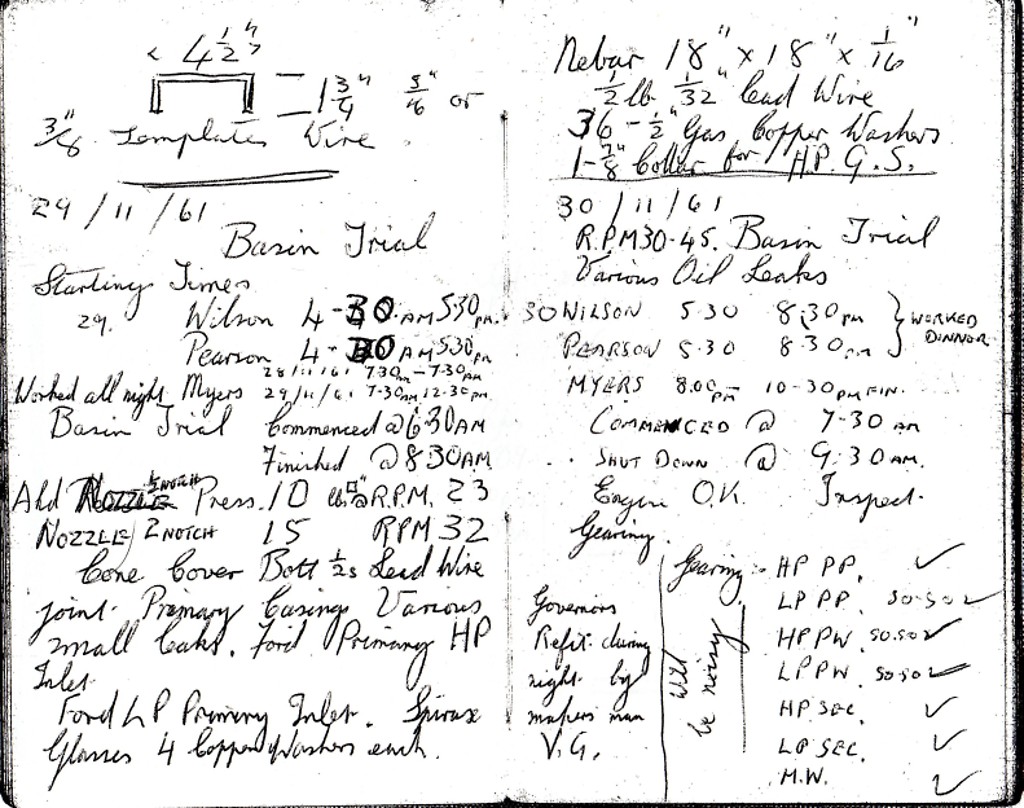 4 1/2"
1 3/4" 5/16" or
3/8" Template Wire
29/11/61
Basin Trial
Starting Times
29. Wilson 4-30 AM 5.30 pm.
Pearson 4-30 AM 5.30 pm
28/11/61 7.30 am-7.30 AM
Worked all night Myers 29/11/61 7.30 AM 12.30 pm.
Basin Trial Commenced @ 6.30 AM
Finished @ 8.30 AM.
Ahd 1/2 NOTCH Press. 10 lbs □" @ R.P.M. 23
NOZZLE/ 2 NOTCH 15 RPM 32
Cone Cover Bott Lead Wire
joint. Primary Casings Various
small leaks. Ford Primary HP
Inlet
Ford LP Primary Inlet. Spirax
Glasses 4 Copper Washers each.
Nebar 18" x 18" x 1/16"
1/2 lb 1/32" Lead Wire
36 - 1/2" Gas Copper Washers
1 - 7/8" Collar for H.P. G.S.
30/11/61
R.P.M 30-45. Basin Trial
Various Oil Leaks
30 WILSON 5.30 8.30 pm
PEARSON 5.30 8.30 pm } WORKED DINNOR
MYERS 8.00 pm - 10-30 pm FIN.
COMMENCED @ 7-30 am
SHUT DOWN @ 9.30 AM.
Engine O.K. Inspect.
Gearing.
Governors
Refit during
night by
makers man
V.G.
will
be noisy
Gearing:- HP PP. ✓
LP PP. SO.SO ✓
HP PW. SO.SO ✓
LP PW. SO-SO ✓
HP SEC. ✓
LP SEC. ✓
M.W. ✓